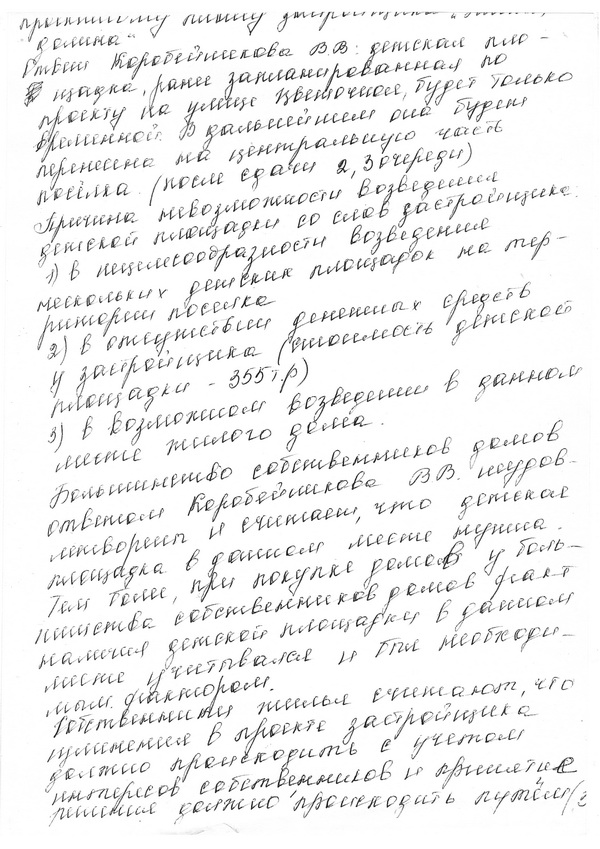 долина"
Ответ Коробейникова В.В: детская пло-
щадка, ранее запланированная по
проекту на улице Цветочной, будет только
временной. В дальнейшем она будет
перенесена на центральную часть
посёлка. (после сдачи 2, 3 очереди)
Причина невозможности возведения
детской площадки со слов застройщика:
1) в нецелесообразности возведения
нескольких детских площадок на тер-
ритории поселка
2) в отсутствии денежных средств
у застройщика (стоимость детской
площадки - 355 т.р)
3) в возможном возведении в данном
месте жилого дома.
Большинство собственников домов
ответом Коробейникова В.В. неудов-
летворены и считают, что детская
площадка в данном месте нужна.
Тем более, при покупке домов у боль-
шинства собственников домов факт
наличия детской площадки в данном
месте учитывался и был необходи-
мым фактором.
Собственники жилья считают, что
изменения в проекте застройщика
должно происходить с учетом
интересов собственников и принятие
решения должно происходить путём